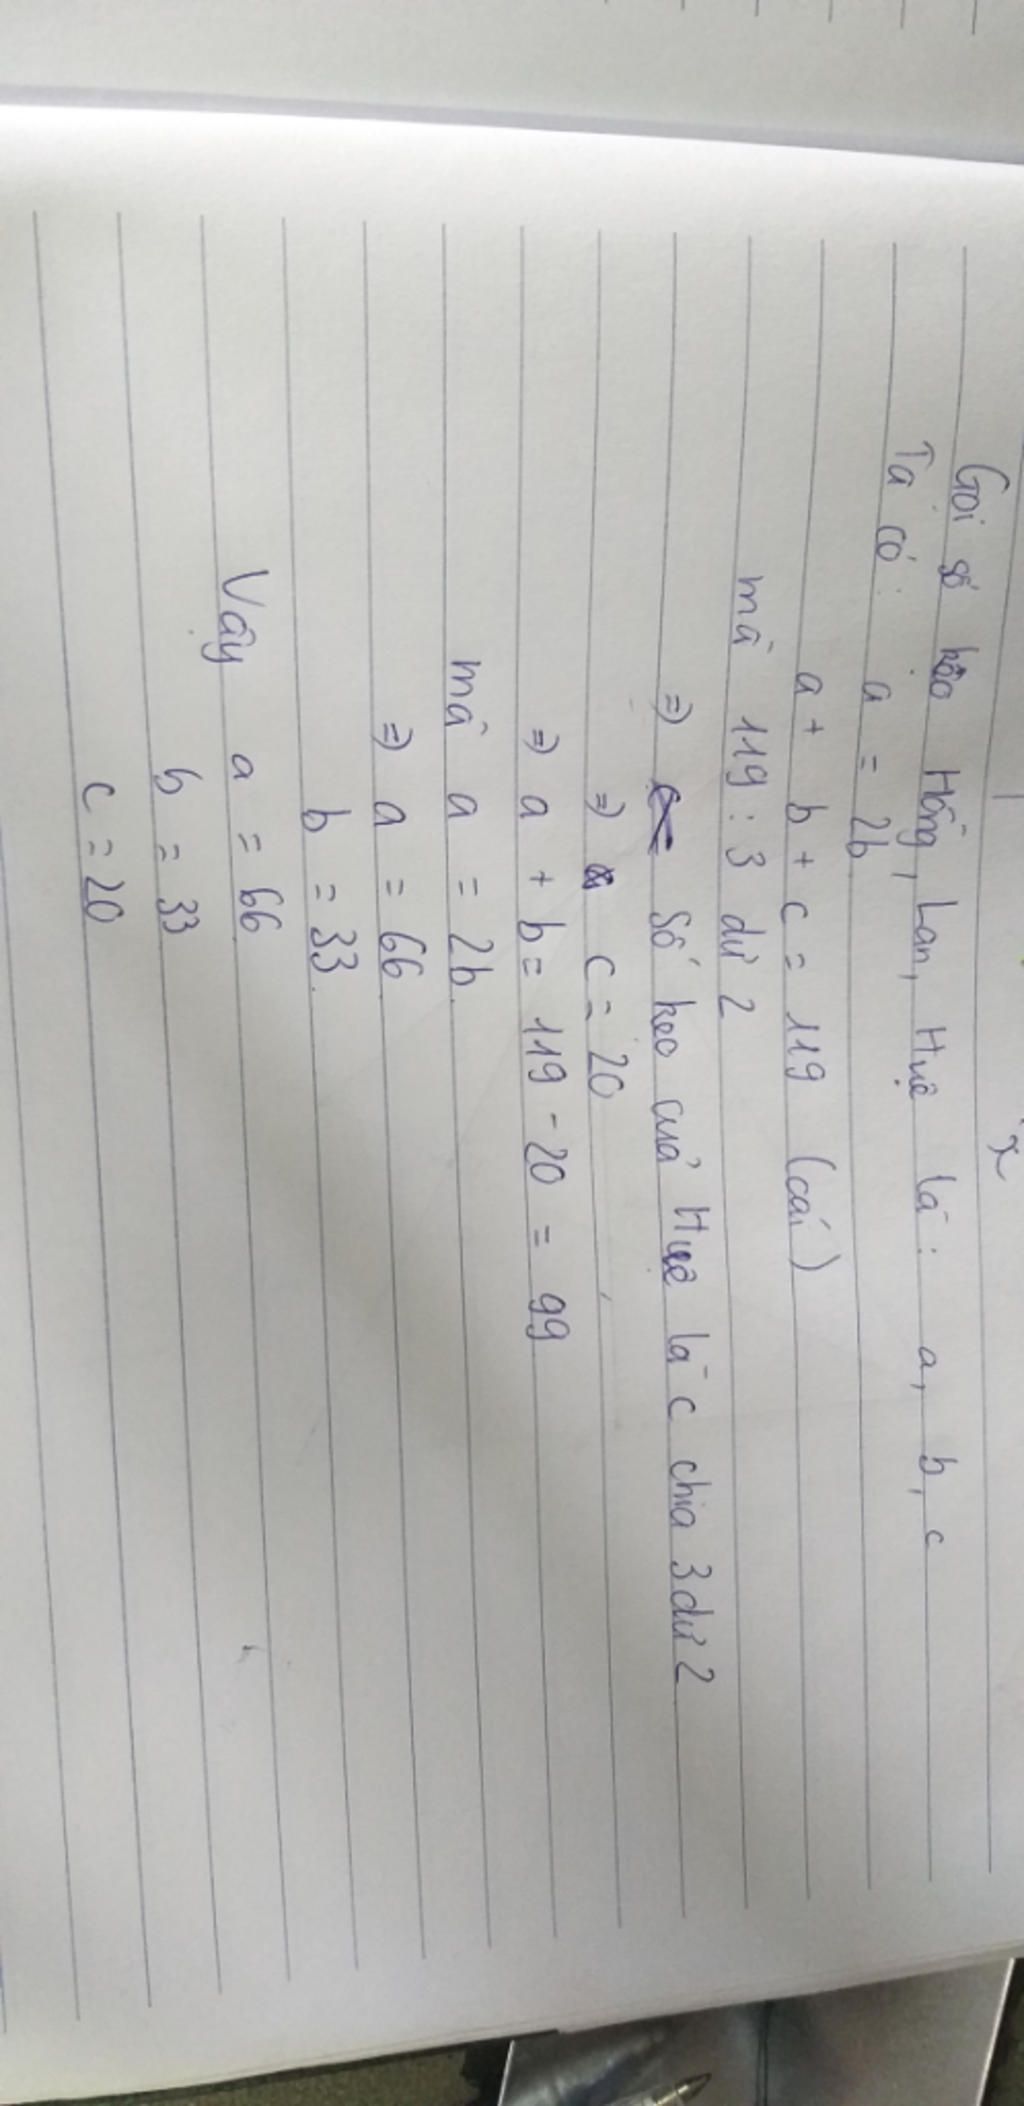 Gọi số kẹo Hồng, Lan, Huệ là: a, b, c
Ta có: a = 2b
a + b + c = 119 (cái)
mà 119 : 3 dư 2
=> Số kẹo của Huệ là c chia 3 dư 2
=> c = 20
=> a + b = 119 - 20 = 99
mà a = 2b
=> a = 66
b = 33
Vậy a = 66
b = 33
c = 20